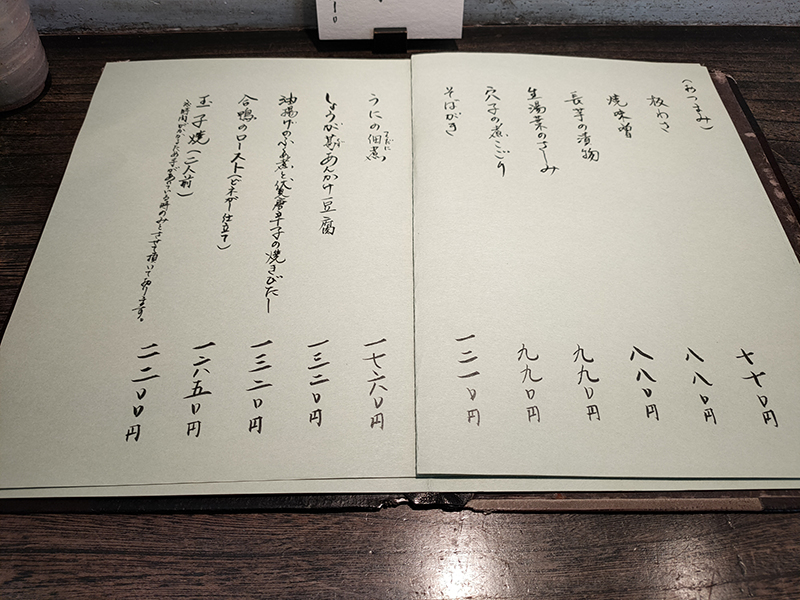 (おつまみ)
板わさ 七七〇円
焼味噌 八八〇円
長芋の漬物 八八〇円
生湯葉のさしみ 九九〇円
穴子の煮こごり 九九〇円
そばがき 一二一〇円
うにの佃煮 一七六〇円
しょうが葛あんかけ豆腐 一三二〇円
油揚げのふくめ煮と伏見唐辛子の焼きびたし 一三二〇円
合鴨のロースト(ビネガー仕立て) 一六五〇円
玉子焼(二人前) 二二〇〇円
お時間がかかるため手があいている時のみとさせて頂いております。